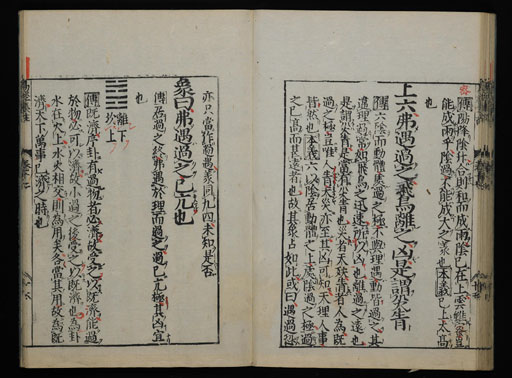 傳陽降陰升合則和而成雨陰已在上雲雖密豈
能成雨乎陰過不能成大之義也本義已上太高
也
上六弗遇過之飛鳥離之凶是謂災眚
傳六陰而動體處過之極不與理遇動皆過之其
違理過常如飛鳥之迅速所以凶也離過之遠也
是謂災眚是當有災眚也災者天殃眚者人為既
過之極豈唯人眚天災亦至其凶可知天理人事
皆然也本義六以陰居動體之上處陰過之極過
之已高而甚遠者也故其象占如此或曰遇過恐
亦只當作過遇義同九四未知是否
象曰弗遇過之已亢也
傳居過之終弗遇於理而過之過已亢極其凶宜
也
離下
坎上
傳既濟序卦有過物者必濟故受之以既濟能過
於物必可以濟故小過之後受之以既濟也為卦
水在火上水火相交則為用矣各當其用故為既
濟天下萬事已濟之時也